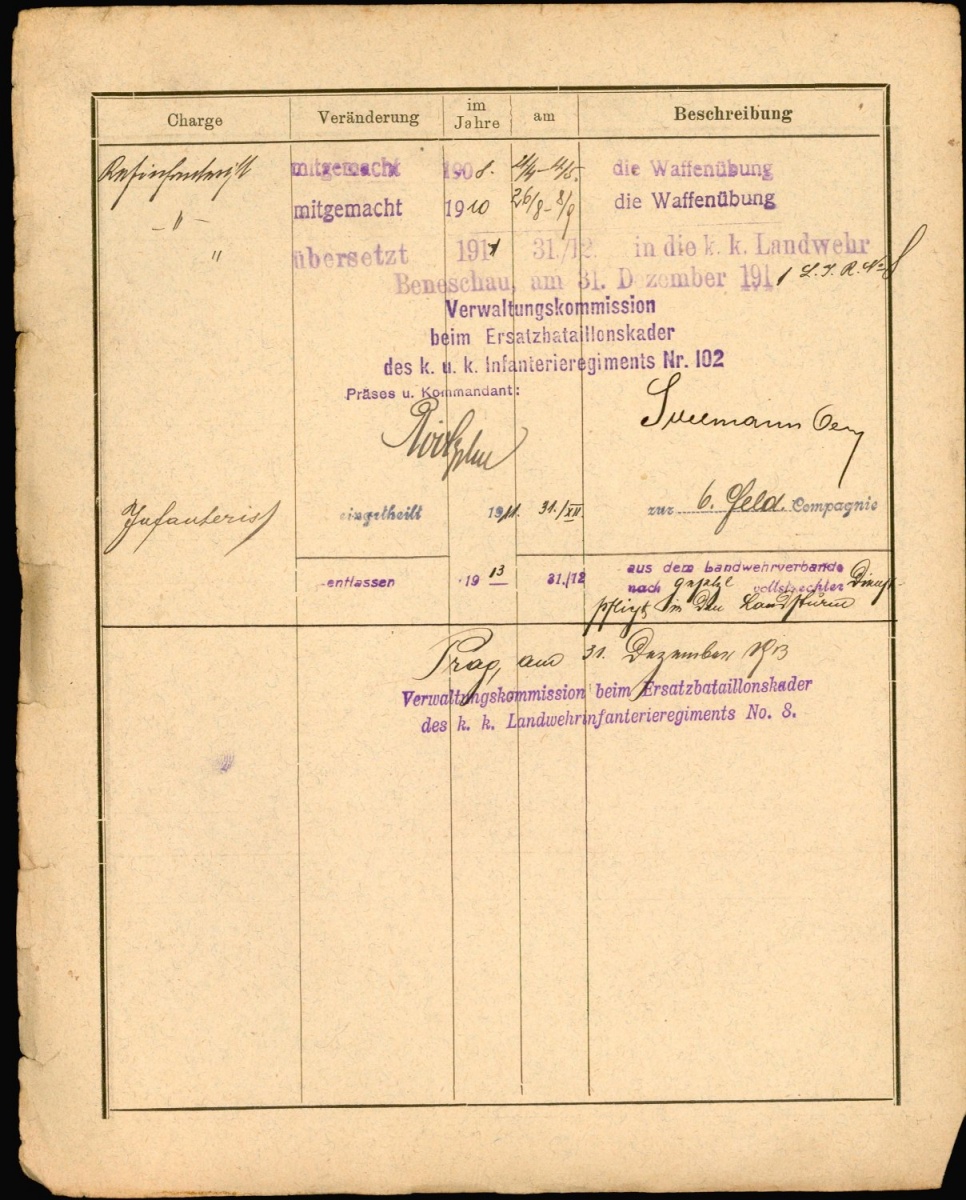 Charge Veränderung im Jahre am Beschreibung
Resinfanterist mitgemacht 1908. 21/4–4/5. die Waffenübung
–〃– mitgemacht 1910 26/8–8/9 die Waffenübung
〃 übersetzt 1911 31./12. in die k. k. Landwehr
Beneschau, am 31. Dezember 1911 L. I. R. No 8
Verwaltungskommission
beim Ersatzbataillonskader
des k. u. k. Infanterieregiments Nr. 102
Präses u. Kommandant:
Infanterist eingetheilt 1911. 31./XII. zur 6. Feld. Compagnie
entlassen 1913 31./12 aus dem Landwehrverbande
nach gesetzl vollstreckter Dienst-
pflicht in den Landsturm
Prag, am 31. Dezember 1913
Verwaltungskommission beim Ersatzbataillonskader
des k. k. Landwehrinfanterieregiments No. 8.